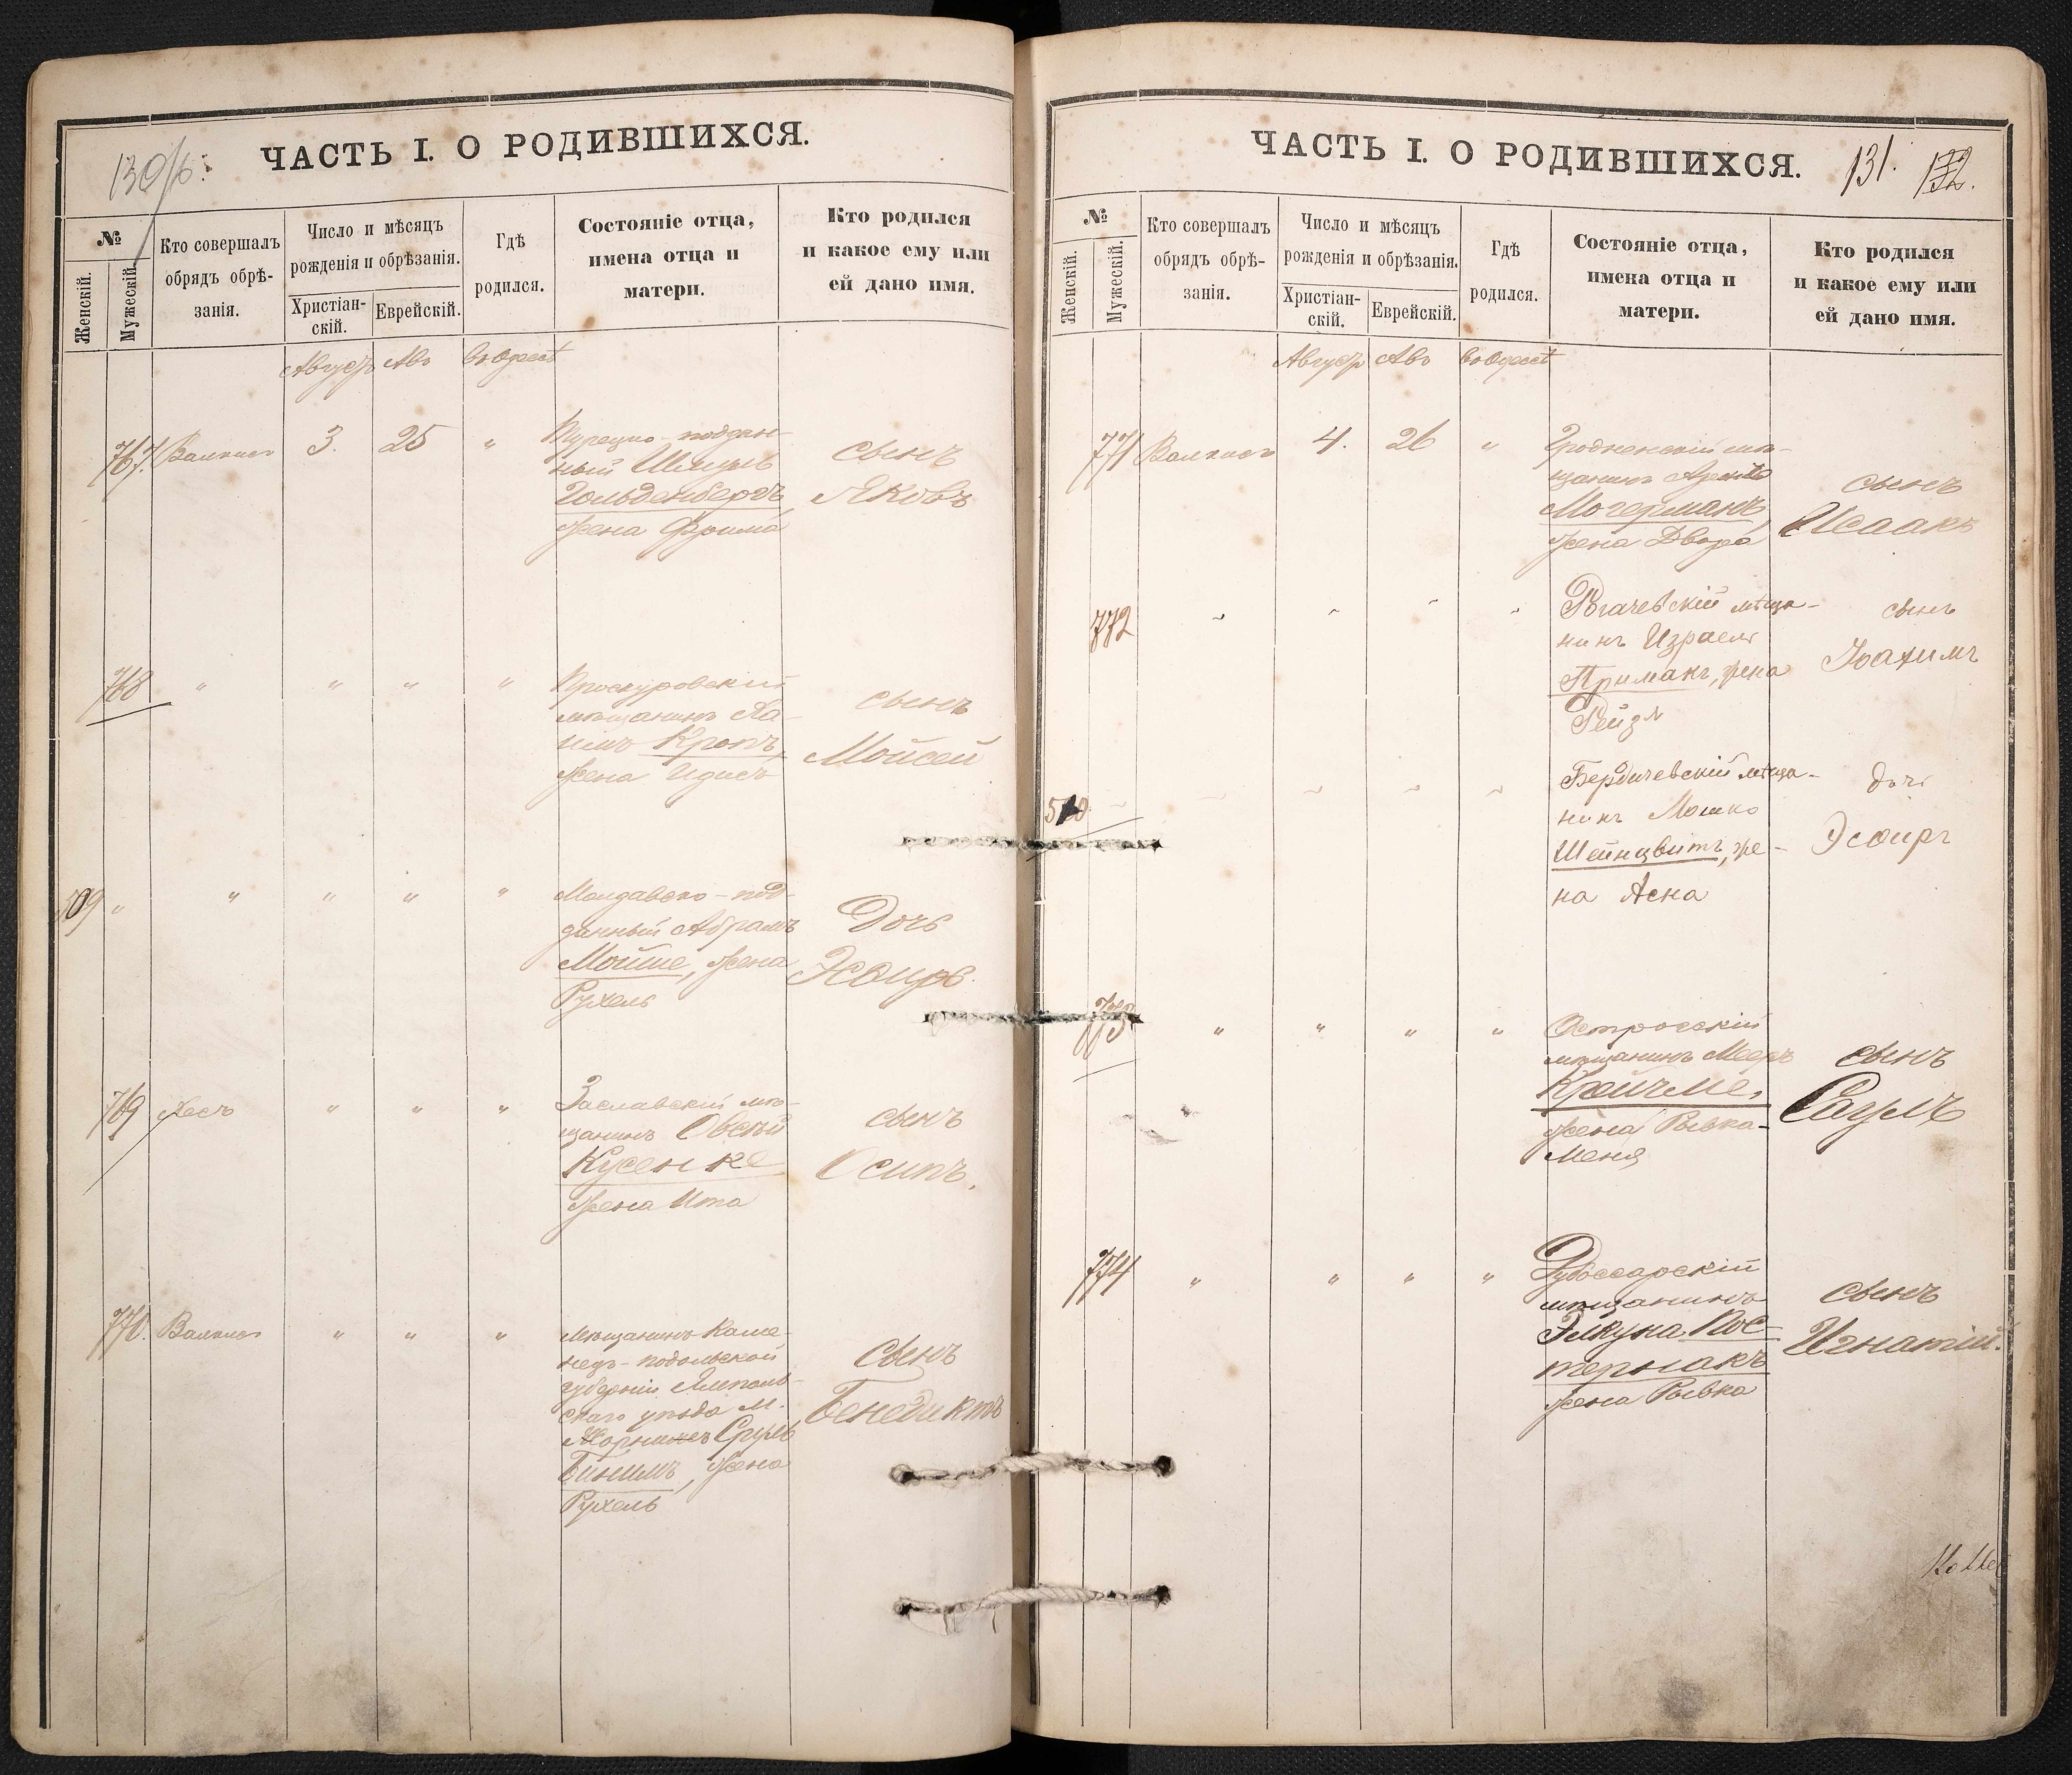 130/б.
ЧАСТЬ I. О РОДИВШИХСЯ.
№
Женскій.
Мужескій.
Кто совершалъ
обрядъ обрѣ-
занія.
Число и мѣсяцъ
рожденія и обрѣзанія.
Христіан-
скій.
Еврейскій.
Гдѣ
родился.
Состояніе отца,
имена отца и
матери.
Кто родился
и какое ему или
ей дано имя.
Августъ Авъ въ Одессѣ
767. 3. 25 "
Турецко-поддан-
ный
Гольденбергъ
жена Фрима
сынъ
Яковъ
768 " " " "
Проскуровскій
мѣщанинъ Ха-
имъ Кропъ,
жена Идись
сынъ
Мойсей
509 " " " " "
Молдавско-под-
данный Абрамъ
Мойше, жена
Рухель
Дочь
Эсѳирь.
769 " " "
Заславскій мѣ-
щанинъ Овсѣй
Кусенке
жена Ита
сынъ
Осипъ.
770. " " "
Мѣщанинъ Каме-
нецъ-подольской
губерніи Ямполь-
скаго уѣзда м.
Сруль
Бинимъ, жена
Рухель
Сынъ
Бенедиктъ
ЧАСТЬ I. О РОДИВШИХСЯ.
131. 132.
№
Женскій.
Мужескій.
Кто совершалъ
обрядъ обрѣ-
занія.
Число и мѣсяцъ
рожденія и обрѣзанія.
Христіан-
скій.
Еврейскій.
Гдѣ
родился.
Состояніе отца,
имена отца и
матери.
Кто родился
и какое ему или
ей дано имя.
Августъ Авъ въ Одессѣ
771 4. 26 "
Гродненскій мѣ-
щанинъ
Могерманъ,
жена Двора
сынъ
Исаакъ
772 " " " "
Рогачевскій мѣща-
нинъ Израель
Примакъ, жена
Рейзя
сынъ
Іоахимъ
510 " " " " "
Бердичевскій мѣща-
нинъ Мошко
Шейнцвитъ, же-
на Асна
дочь
Эсѳирь
773 " " " "
Острогскій
мѣщанинъ Мееръ
Крейчме,
жена Рывка-
Меня
сынъ
Саулъ
774 " " " "
Дубоссарскій
мѣщанинъ
Элкуна Пос-
тернакъ
жена Рывка
сынъ
Игнатій.